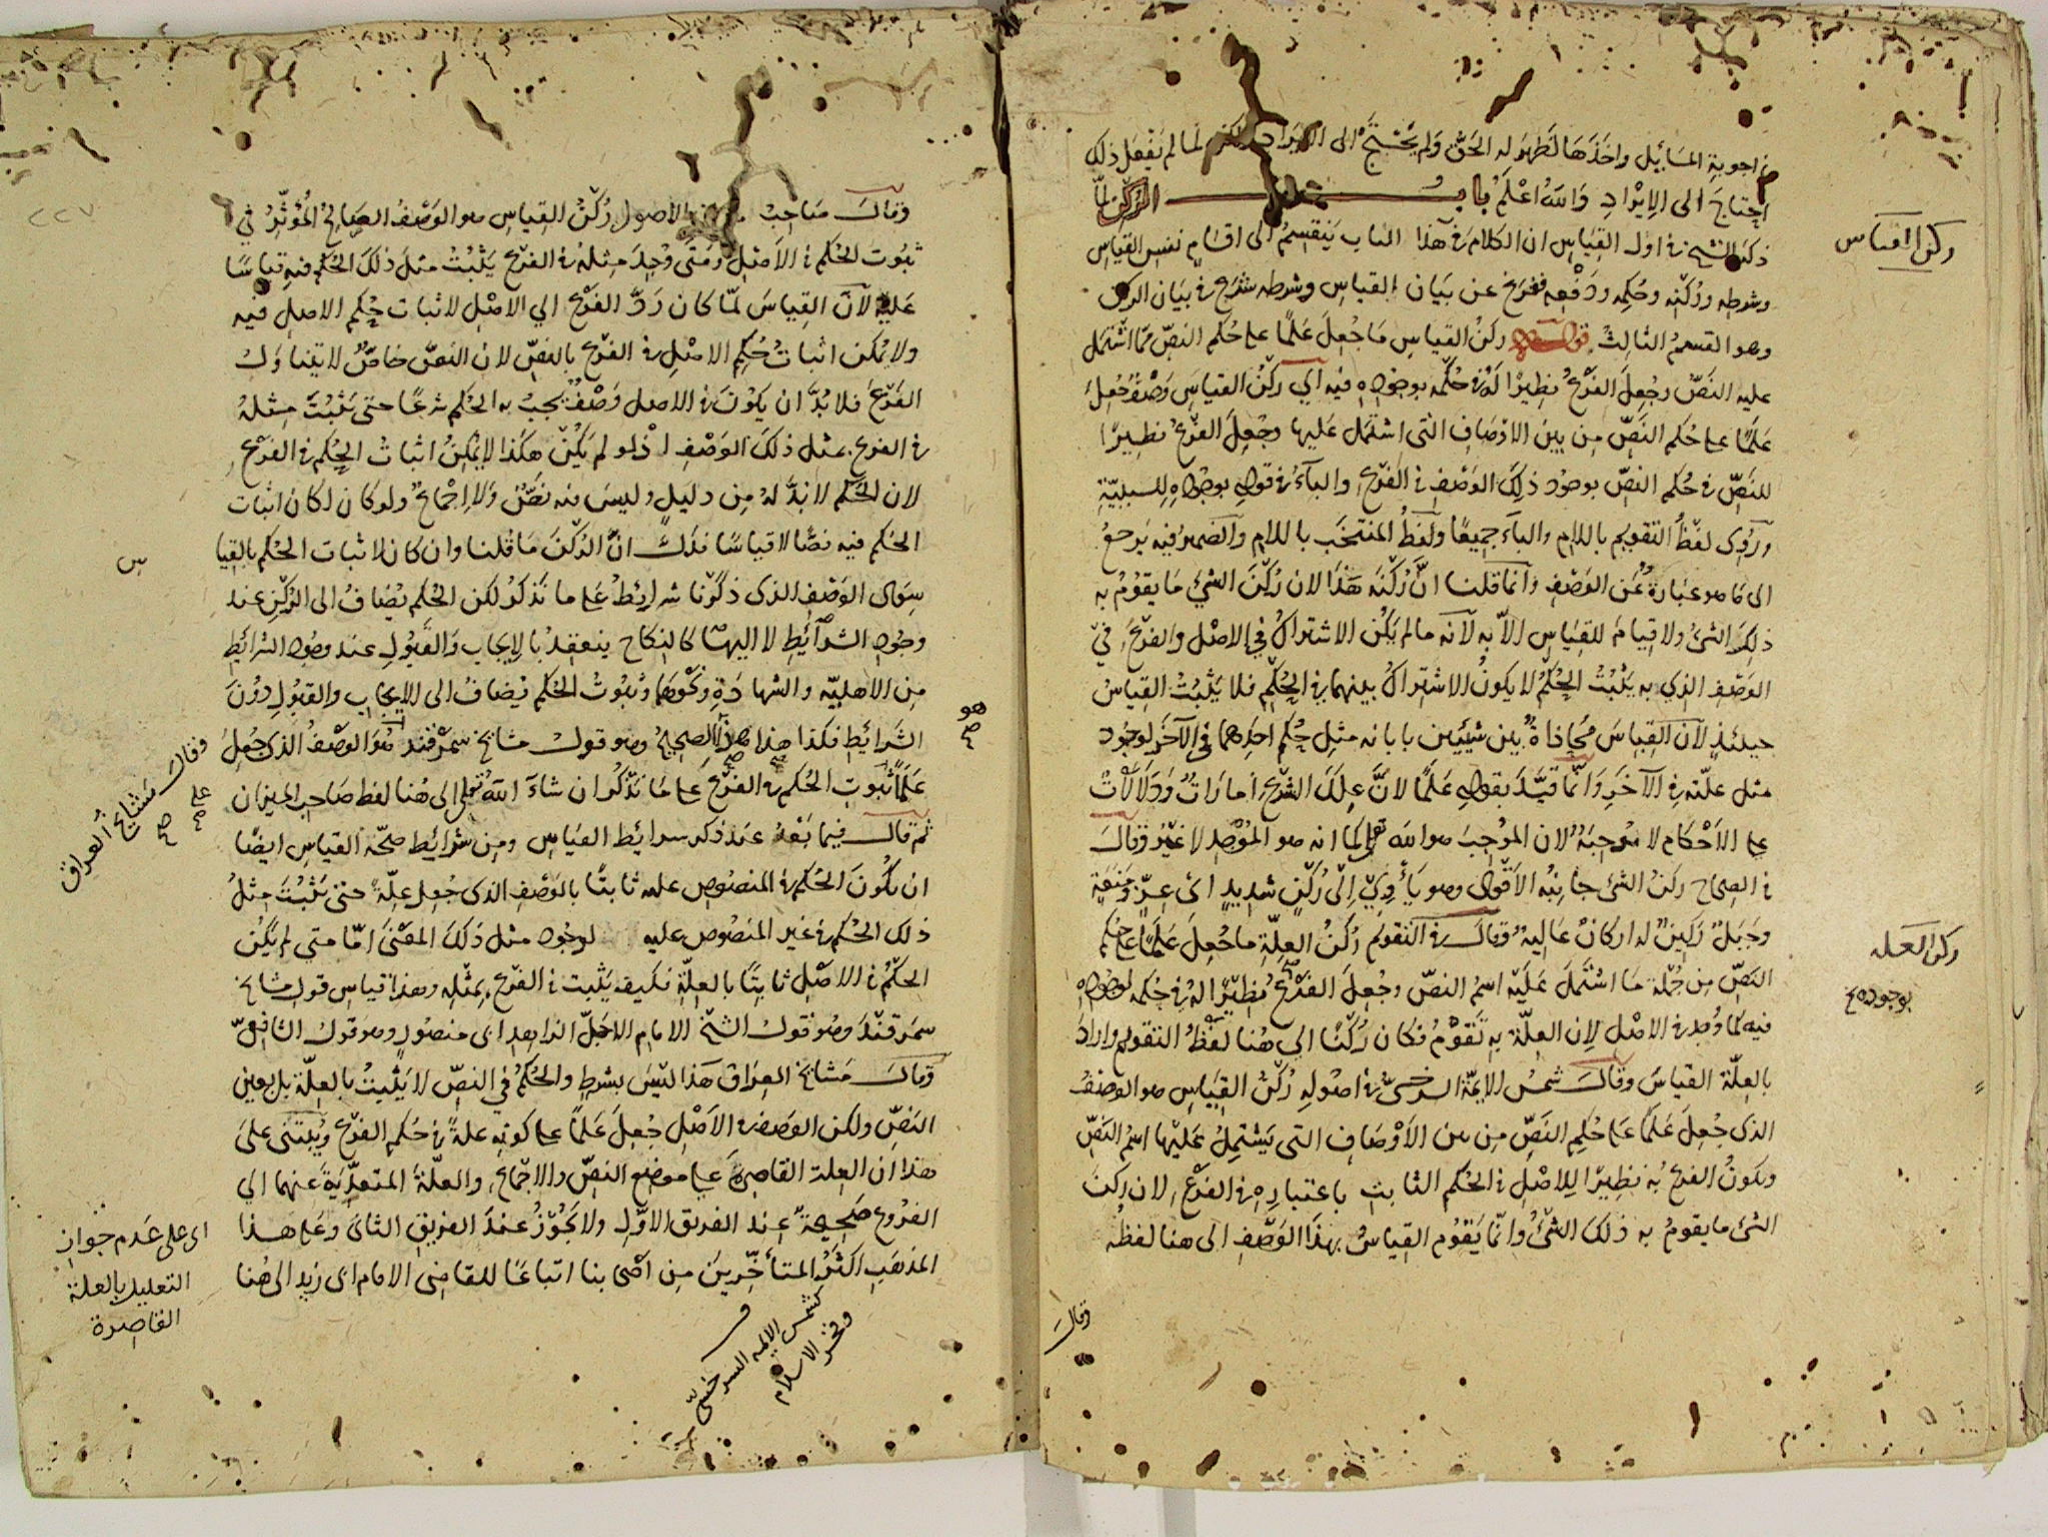 في اجوبة المسائيل واخذها لظهر له الحق ولم يحتج الى الايراد لكن لما لم يفعل ذلك
احتاج الى الايراد والله اعلم باب الركن لما
ذكر الشيخ في اول القياس ان الكلام في هذا الباب ينقسم الى اقسام نفس القياس
وشرطه وركنه وحكمه ودفعه ففرغ عن بيان القياس وشرطه شرع في بيان الركن
وهو القسم الثالث قوله ركن القياس ما جعل علما على حكم النص مما اشتمل
عليه النص وجعل الفرع نظيرا له في حكمه بوجوده فيه اي ركن القياس وصف جعل
علما على حكم النص من بين الاوصاف التى اشتمل عليها وجعل الفرع نظيرا
للنص في حكم النص بوجود ذلك الوصف في الفرع والباء في قوله بوجوده للسببية
وروى لفظ التقويم باللام والباء جميعا ولفظ المنتخب باللام والضمير فيه يرجع
الى ما هو عبارة عن الوصف وانما قلنا ان ركنه هذا لان ركن الشئ ما يقوم به
ذلك الشئ ولا قيام للقياس الا به لانه ما لم يكن الاشتراك في الاصل والفرع في
الوصف الذي به يثبت الحكم لا يكون الاشتراك بينهما في الحكم فلا يثبت القياس
حينئذ لان القياس محاذاة بين شيئين بابانه مثل حكم احدهما في الآخر لوجود
مثل علته في الآخر وانما قيد بقوله علما لان علل الشرع امارات ودلالات
على الاحكام لا موجبة لان الموجب هو الله تعالى كما انه هو الموجد لا غير وقال
في الصحاح ركن الشئ جانبه الاقوى وهو يأوي الى ركن شديد اى عز ومنعة
وجبل ركين له اركان عالية وقال في التقويم ركن العلة ما جعل علما على حكم
النص من جملة ما اشتمل عليه اسم النص وجعل الفرع نظيرا له في حكمه لوجوده
فيه كما وجد في الاصل لان العلة به تقوم فكان ركنا الى هنا لفظ التقويم واراد
بالعلة القياس وقال شمس الايمة السرخسي في اصوله ركن القياس هو الوصف
الذى جعل علما على حكم النص من بين الاوصاف التى يشتمل عليها اسم النص
ويكون الفرع به نظيرا للاصل في الحكم الثابت باعتباره في الفرع لان ركن
الشئ ما يقوم به ذلك الشئ وانما يقوم القياس بهذا الوصف الى هنا لفظه
وقال
ركن القياس
ركن العله
بوجوده
٢٢٧
وقال صاحب الاصول ركن القياس هو الوصف الصالح المؤثر في
ثبوت الحكم في الاصل ومتى وجد مثله في الفرع يثبت مثل ذلك الحكم فيه قياسا
عليه لان القياس لما كان رد الفرع الي الاصل لاثبات حكم الاصل فيه
ولا يمكن اثبات حكم الاصل في الفرع بالنص لان النص خاص لا يتناول
الفرع فلا بد ان يكون في الاصل وصف يجب به الحكم شرعا حتى يثبت مثله
في الفرع بمثل ذلك الوصف اذ لو لم يكن هكذا لا يمكن اثبات الحكم في الفرع
لان الحكم لا بد له من دليل وليس فيه نص ولا اجماع ولو كان لكان اثبات
الحكم فيه نصا لا قياسا فدل ان الركن ما قلنا وان كان لاثبات الحكم بالقيا
س
سوى الوصف الذى ذكرنا شرايط على ما نذكر لكن الحكم يضاف الى الركن عند
وجود الشرائط لا اليها كالنكاح ينعقد بالايجاب والقبول عند وجود الشرائط
من الاهلية والشهادة ونحوهما وثبوت الحكم يضاف الى الايجاب والقبول دون
الشرائط فكذا هذا هذا الصحيح وهو قول مشايخ سمرقند هو الوصف الذى جعل
علما ثبوت الحكم في الفرع على ما نذكر ان شاء الله تعالى الى هنا لفظ صاحب الميزان
ثم قال فيما بعد عند ذكر شرايط القياس ومن شرائط صحة القياس ايضا
ان يكون الحكم في المنصوص عليه ثابتا بالوصف الذى جعل علة حتى يثبت مثل
ذلك الحكم في غير المنصوص عليه لوجود مثل ذلك المعنى اما متى لم يكن
الحكم في الاصل ثابتا بالعلة فكيف يثبت في الفرع بمثله وهذا قياس قول مشايخ
سمرقند وهو قول الشيخ الامام الاجل الزاهد ابى منصور وهو قول الشافعى
وقال مشايخ العراق هذا ليس بشرط والحكم في النص لا يثبت بالعلة بل بعين
النص ولكن الوصف في الاصل جعل علما على كونه علة في حكم الفرع ويبتنى على
هذا ان العلة القاصرة على موضع النص والاجماع والعلة المتعدية عنهما الي
الفروع صحيحة عند الفريق الاول ولا يجوز عند الفريق الثانى وعلى هذا
المذهب اكثر المتأخرين من اصحابنا اتباعا للقاضى الامام ابى زيد الى هنا
هو
صح
وقال مشايخ العراق
صح
على
صح
اى على عدم جواز
التعليل بالعلة
القاصرة
كشمس الائمه السرخسى
وفخر الاسلام